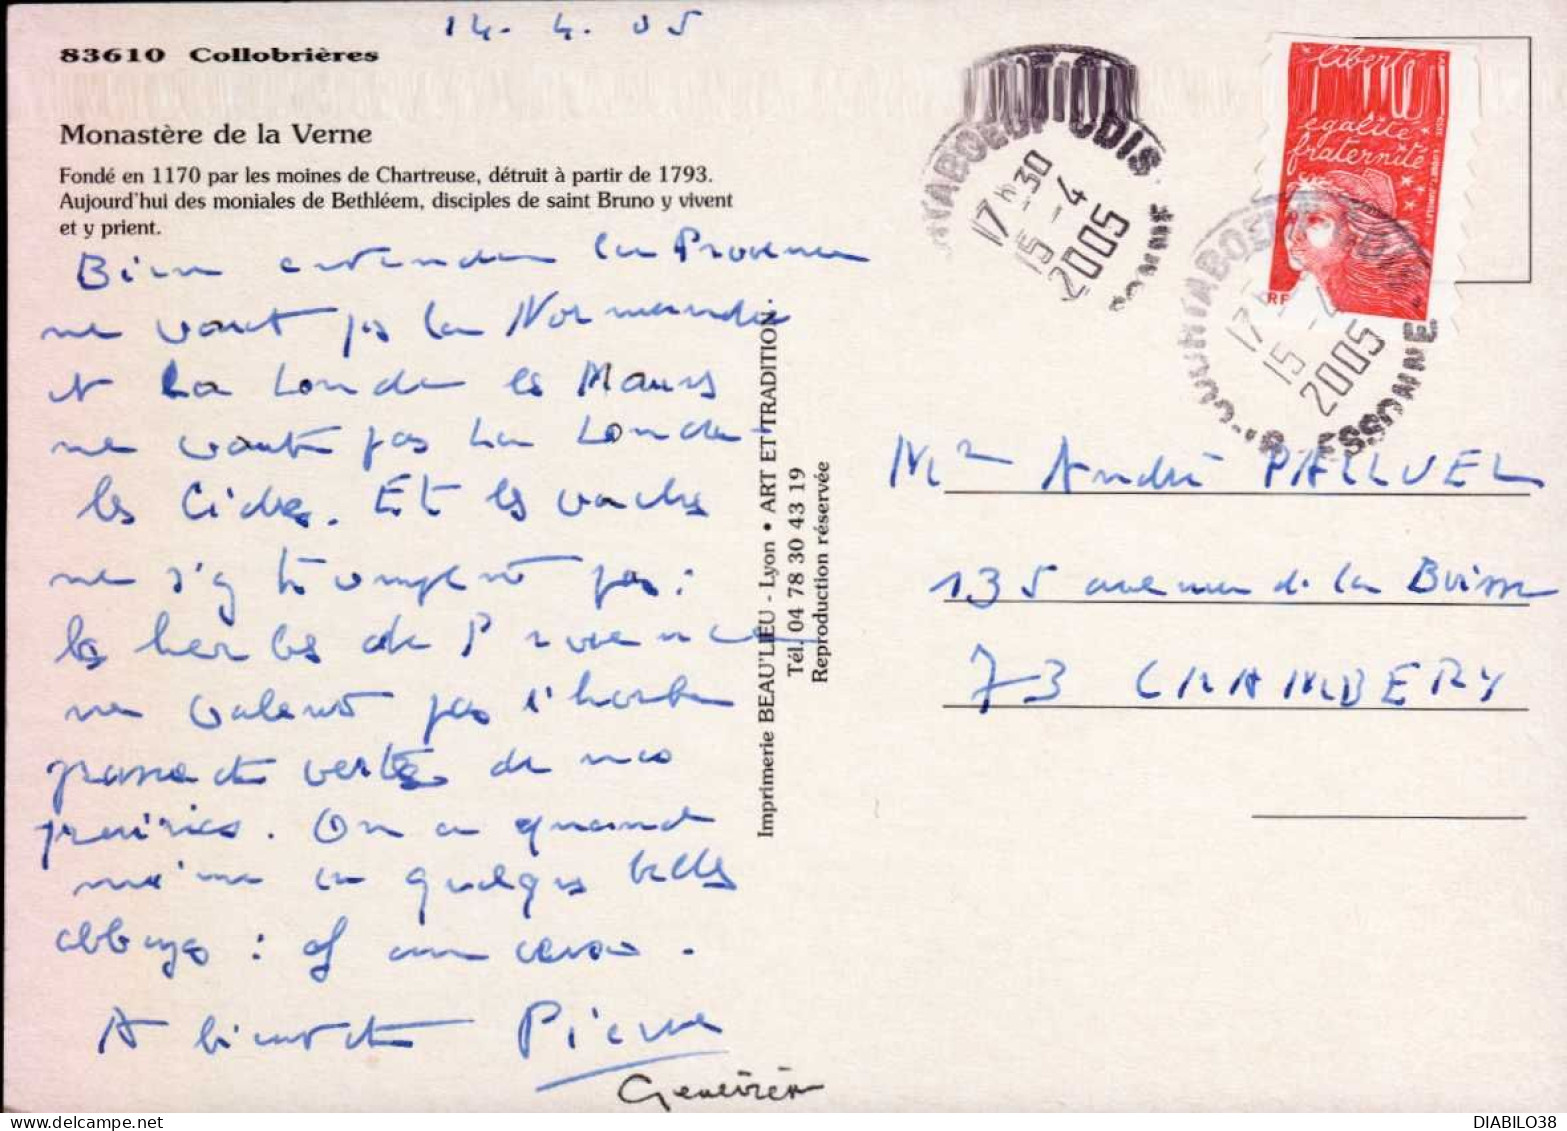 14.4.05
83610 Collobrières
Monastère de la Verne
Fondé en 1170 par les moines de Chartreuse, détruit à partir de 1793.
Aujourd'hui des moniales de Bethléem, disciples de saint Bruno y vivent
et y prient.
Bien entendu la Provence
ne vaut pas la Normandie
et La Londe les Maures
ne vaut pas La Londe
les Cidres. Et les vaches
ne s'y trompent pas :
les herbes de Provence
ne valent pas l'herbe
grasse et verte de nos
prairies. On a quand
même vu quelques belles
abbayes : cf au verso.
A bientôt Pierre
Geneviève
Imprimerie BEAU'LIEU - Lyon • ART ET TRADITION
Tél. 04 78 30 43 19
Reproduction réservée
17h30
15-4
2005
liberté
égalité
fraternité
RF
17
15-4
2005
ESSONNE
Mme André PALLUEL
135 avenue de la Boisse
73 CHAMBERY
DIABILO38